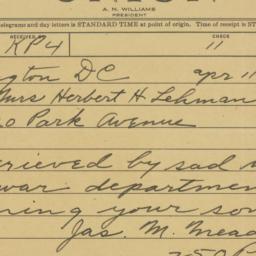 A. N. WILLIAMS
PRESIDENT
telegrams and day letters is STANDARD TIME at point of origin. Time of receipt is ST
RECEIVED
CHECK
KP4
11
gton DC apr 11
Mrs Herbert H Lehman
0 Park Avenue
rieved by sad
war departmen
ning your son
Jas. M. Mead
750P